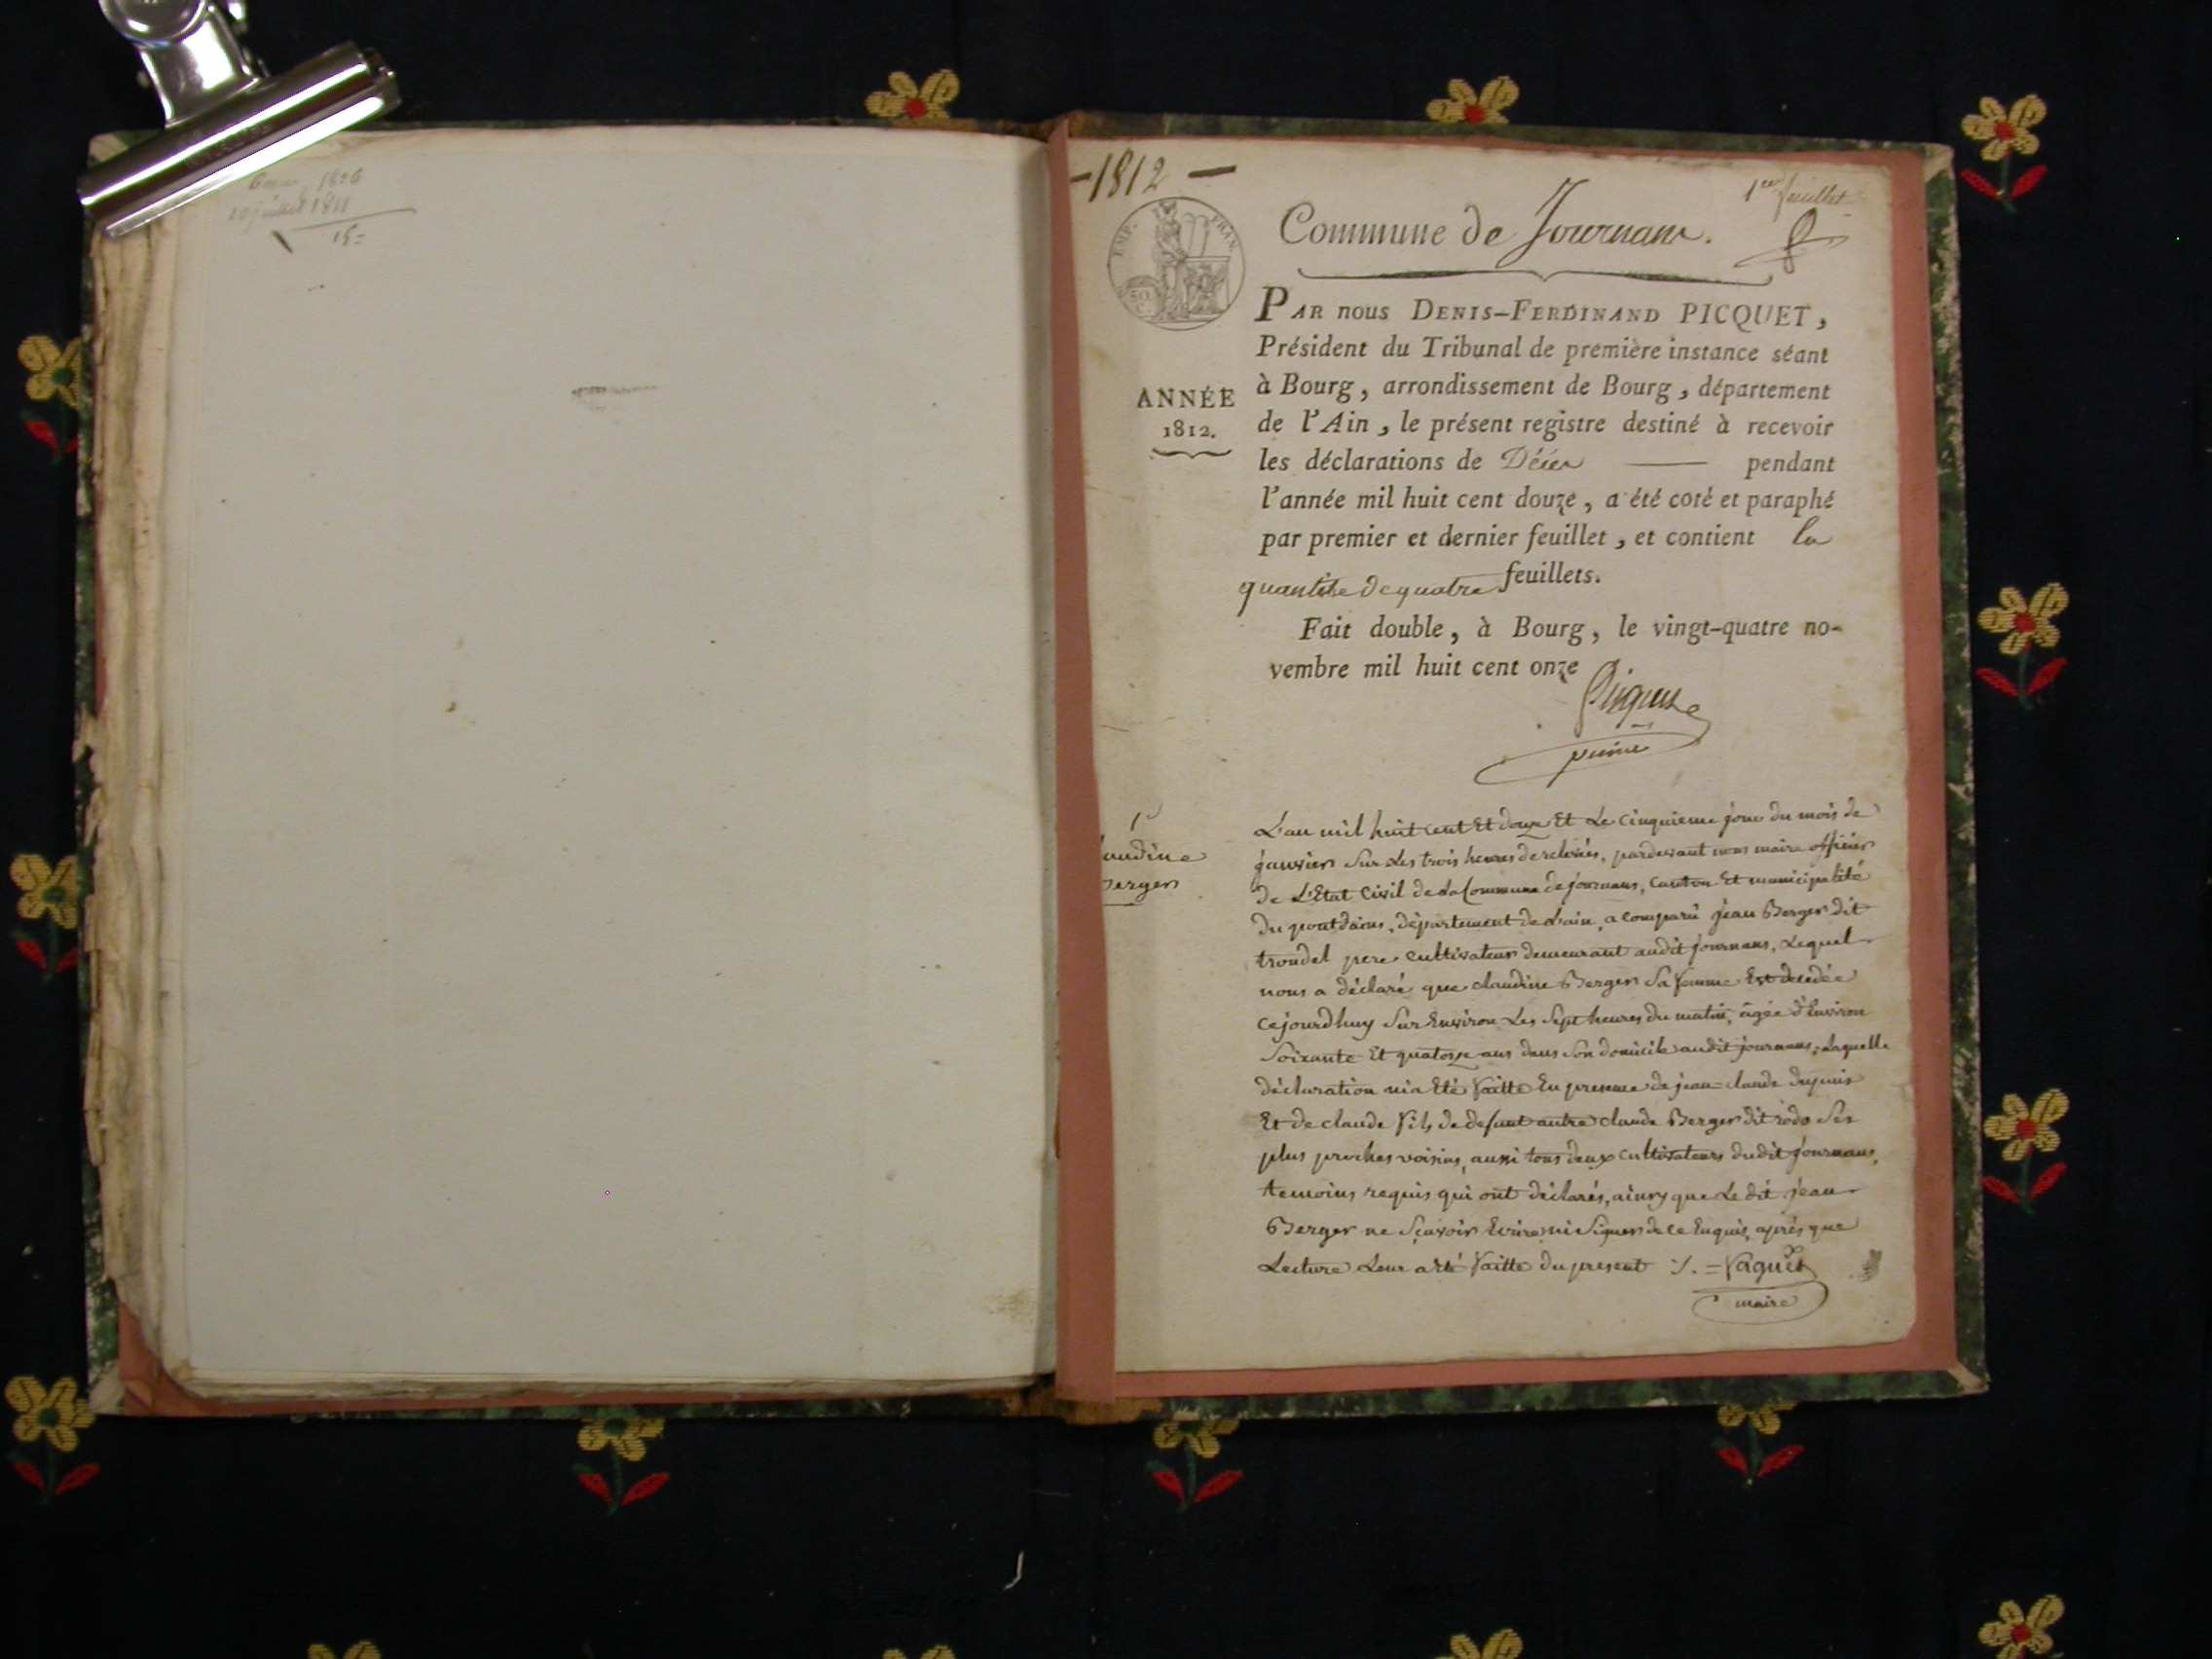 10 juillet 1811
15=
-1812-
1er feuillet
IMP. FRAN.
50
Commune de Journans.
PAR nous DENIS-FERDINAND PICQUET,
Président du Tribunal de première instance séant
à Bourg, arrondissement de Bourg, département
ANNÉE
1812.
de l'Ain, le présent registre destiné à recevoir
les déclarations de Décès — pendant
l'année mil huit cent douze, a été coté et paraphé
par premier et dernier feuillet, et contient la
quantité de quatre feuillets.
Fait double, à Bourg, le vingt-quatre no-
vembre mil huit cent onze
Picquet
1
laudine
Berger
L'an mil huit cent Et douze Et Le Cinquieme jour du mois de
janvier Sur Les trois heures de relevés, pardevant nous maire officier
de L'Etat Civil de La Commune de journans, Canton Et municipalité
du pontdains, département de L'ain, a comparû jean Berger dit
troudel pere cultivateur demeurant audit journans, Lequel
nous a déclaré que claudine Berger Sa femme Est decedée
cejourdhuy Sur Environ Les Sept heures du matin, âgée d'Environ
Soixante Et quatorze ans dans Son domicile audit journans; Laquelle
déclaration m'a Eté faitte En presence de jean-claude dupuis
Et de claude fils de defunt autre claude Berger dit rodo Ses
plus proches voisins, aussi tous deux cultivateurs dudit journans,
temoins requis qui ont déclarés, ainsy que Le dit jean
Berger ne Sçavoir Ecrire ni Signer de ce Enquis, après que
Lecture Leur a Eté faitte du present ./. = faguet
maire